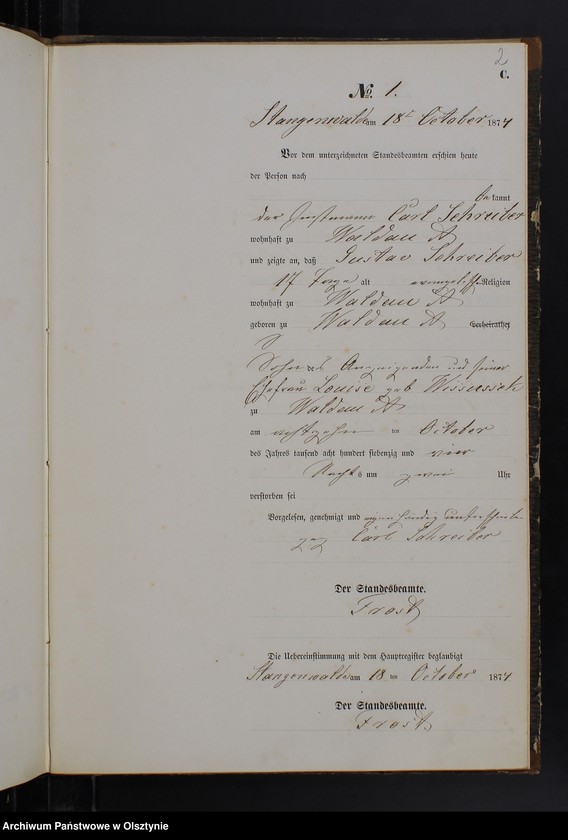 2
C.
No. 1.
Stangenwalde am 18t October 1874
Vor dem unterzeichneten Standesbeamten erschien heute
der Person nach
bekannt
der Carl Schreiber
wohnhaft zu Waldau A
und zeigte an, daß Gustav Schreiber
17 Tage alt evangelisch Religion
wohnhaft zu Waldau A
geboren zu Waldau A verheirathet
Sohn des Anzeigenden und seiner
Ehefrau Louise geb
zu Waldau A
am achtzehn ten October
des Jahres tausend acht hundert siebenzig und vier
Nachts um zwei Uhr
verstorben sei
Vorgelesen, genehmigt und eigenhändig unterschrieben
Carl Schreiber
Der Standesbeamte.
Frost
Die Uebereinstimmung mit dem Hauptregister beglaubigt
Stangenwalde am 18 ten October 1874
Der Standesbeamte.
Frost
Archiwum Państwowe w Olsztynie